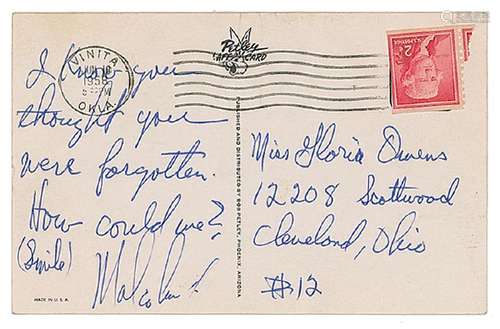 I know you
thought you
were forgotten.
How could we?
(Smile)
Malcolm X
MADE IN U.S.A.
VINITA
1958
OKLA.
Petley
PUBLISHED AND DISTRIBUTED BY BOB PETLEY, PHOENIX, ARIZONA
2¢
Miss Gloria Owens
12208 Scottwood
Cleveland, Ohio
#12